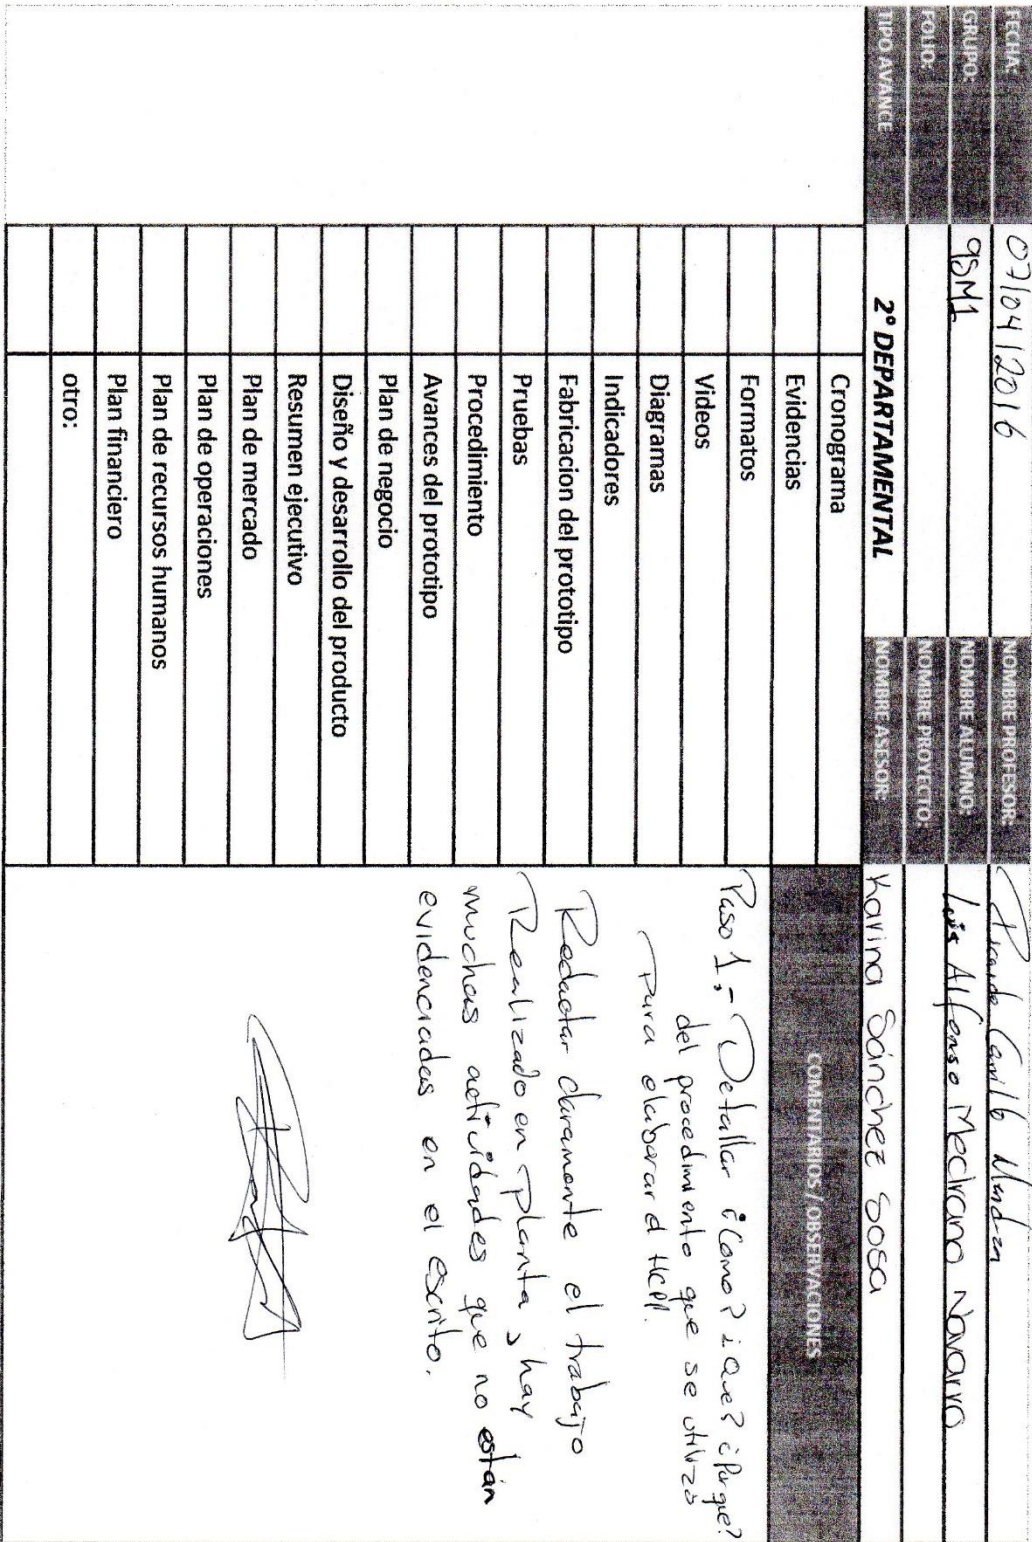 FECHA: 07/04/2016 NOMBRE PROFESOR: Carrillo
GRUPO: 9SM1 NOMBRE ALUMNO: Luis Alfonso Medrano Navarro
FOLIO: NOMBRE PROYECTO:
TIPO AVANCE 2° DEPARTAMENTAL NOMBRE ASESOR: Karina Sánchez Sosa
Cronograma
Evidencias
Formatos
Videos
Diagramas
Indicadores
Fabricacion del prototipo
Pruebas
Procedimiento
Avances del prototipo
Plan de negocio
Diseño y desarrollo del producto
Resumen ejecutivo
Plan de mercado
Plan de operaciones
Plan de recursos humanos
Plan financiero
otro:
COMENTARIOS / OBSERVACIONES
Paso 1.- Detallar ¿Como? ¿Que? ¿Porque?
del procedimiento que se utilizo
para elaborar el
Redactar claramente el trabajo
Realizado en planta, hay
muchas actividades que no están
evidenciadas en el escrito.